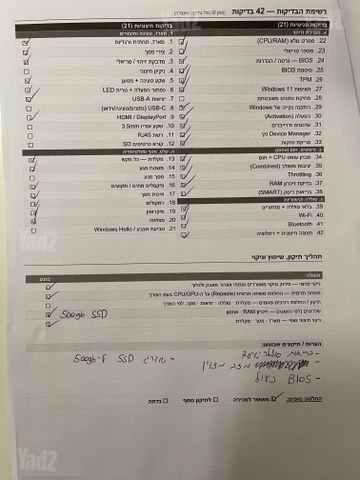 רשימת הבדיקות — 42 בדיקות
בדיקות חיצוניות (21)
1. מארז, תחתית וצירים
2. צירי מסך
3. מדבקת זיהוי / סריאלי
4. ניקיון חיצוני
5. שקע טעינה + מטען
6. כפתור הפעלה + נורית LED
7. יציאות USB-A
8. USB-C
9. HDMI / DisplayPort
10. שקע אודיו 3.5mm
11. רשת RJ45
12. קורא כרטיסים SD
13. מקלדת — כל מקש
14. משטח מגע
15. מסך מגע
16. פיקסלים מתים / כתמים
17. איכות מסך
18. רמקולים
19. מיקרופון
20. מצלמה
21. טביעת אצבע / Windows Hello
בדיקות פנימיות (21)
22. מפרט מלא (CPU/RAM)
23. מספר סריאלי
24. BIOS — גרסה / הגדרות
25. סיסמת BIOS
26. TPM
27. תאימות Windows 11
28. מחיקת נתונים מאובטחת
29. התקנה נקייה של Windows
30. הפעלה (Activation)
31. עדכונים ודרייברים
32. Device Manager נקי
33. מריחת
34. מבחן עומס CPU + חום
35. יציבות משולב (Combined)
36. Throttling
37. בדיקת זיכרון RAM
38. בריאות דיסק (SMART)
39. בלאי סוללה + מחזורים
40. Wi-Fi
41. Bluetooth
42. תמונה אחרונה +
תהליך תיקון, שיפוץ וניקוי
פעולה
בוצע
500gb SSD
הערות / תיקונים שבוצעו:
- שודרג SSD ל-500gb
BIOS נעול
החלטה סופית:
מאושר למכירה
לתיקון נוסף
נדחה
Yad2